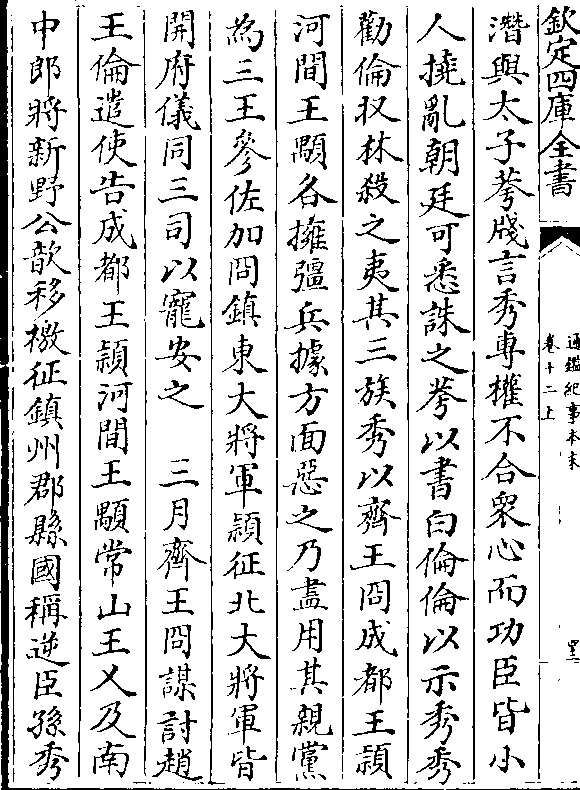 欽定四庫全書
通鑑紀事本末
卷十二上
潛與太子荂牋言秀專權不合衆心而功臣皆小
人撓亂朝廷可悉誅之荂以書白倫倫以示秀秀
勸倫収林殺之夷其三族秀以齊王冏成都王穎
河間王顒各擁彊兵據方面惡之乃盡用其親黨
為三王參佐加冏鎮東大將軍穎征北大將軍皆
開府儀同三司以寵安之　三月齊王冏謀討趙
王倫遣使告成都王穎河間王顒常山王乂及南
中郎將新野公歆移檄征鎮州郡縣國稱逆臣孫秀